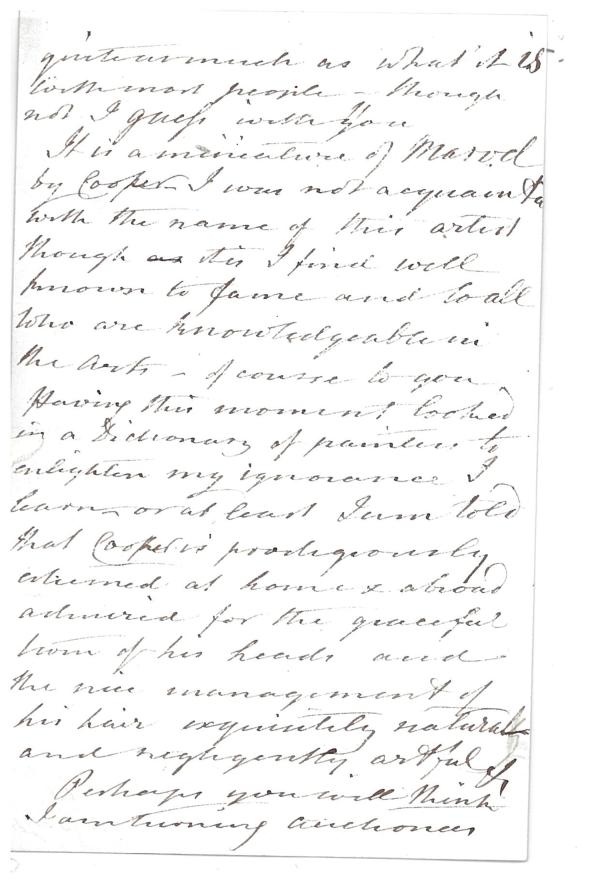 quite as much as what it is
with most people – though
not I guess with you
It is a miniature of Marvel
by Cooper I was not acquainted
with the name of this artist
though as it is I find well
known to fame and to all
who are knowledgeable in
the arts – of course to you.
Having this moment looked
in a Dictionary of painters to
enlighten my ignorance I
learn or at least I am told
that Cooper is prodigiously
esteemed at home & abroad
admired for the graceful
turn of his heads and
the nice management of
his hair exquisitely natural
and negligently artful
Perhaps you will think
I am turning auctioneer